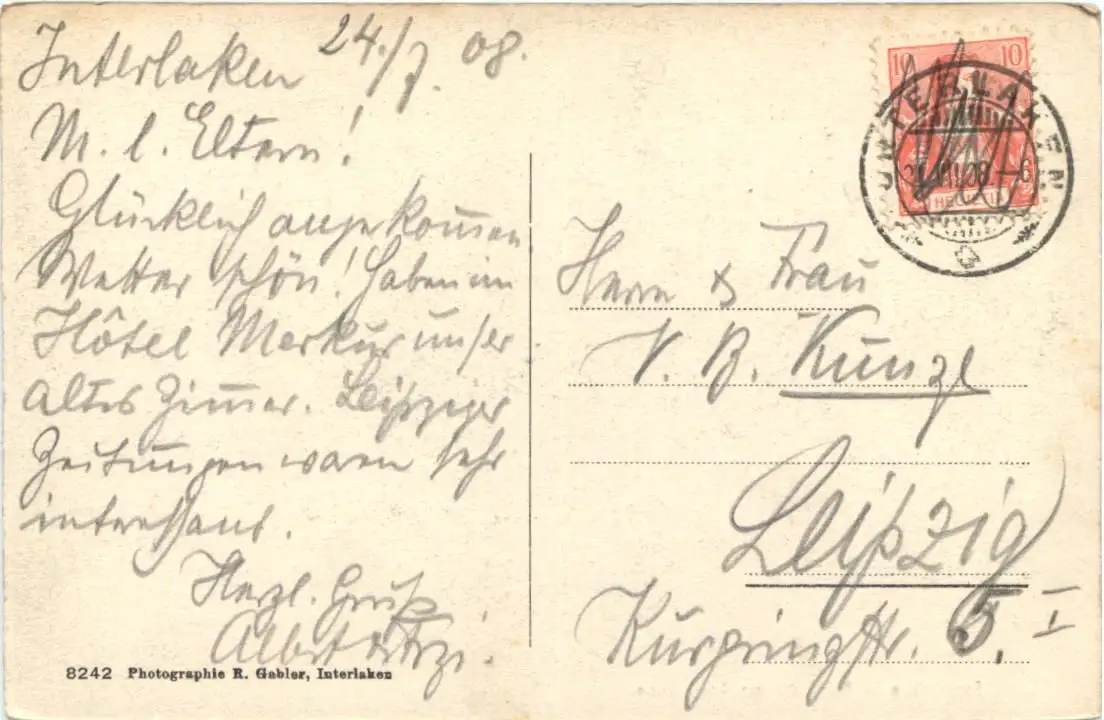 Interlaken 24./7. 08.
M. l. Eltern!
Glücklich angekommen
Wetter schön! Haben im
Hôtel Merkur unser
altes Zimmer. Leipziger
Zeitungen waren sehr
interessant.
Herzl. Gruß
Albert
8242 Photographie R. Gabler, Interlaken
10 10
HELVETIA
INTERLAKEN
Herrn & Frau
V. B. Kunze
Leipzig
5. I